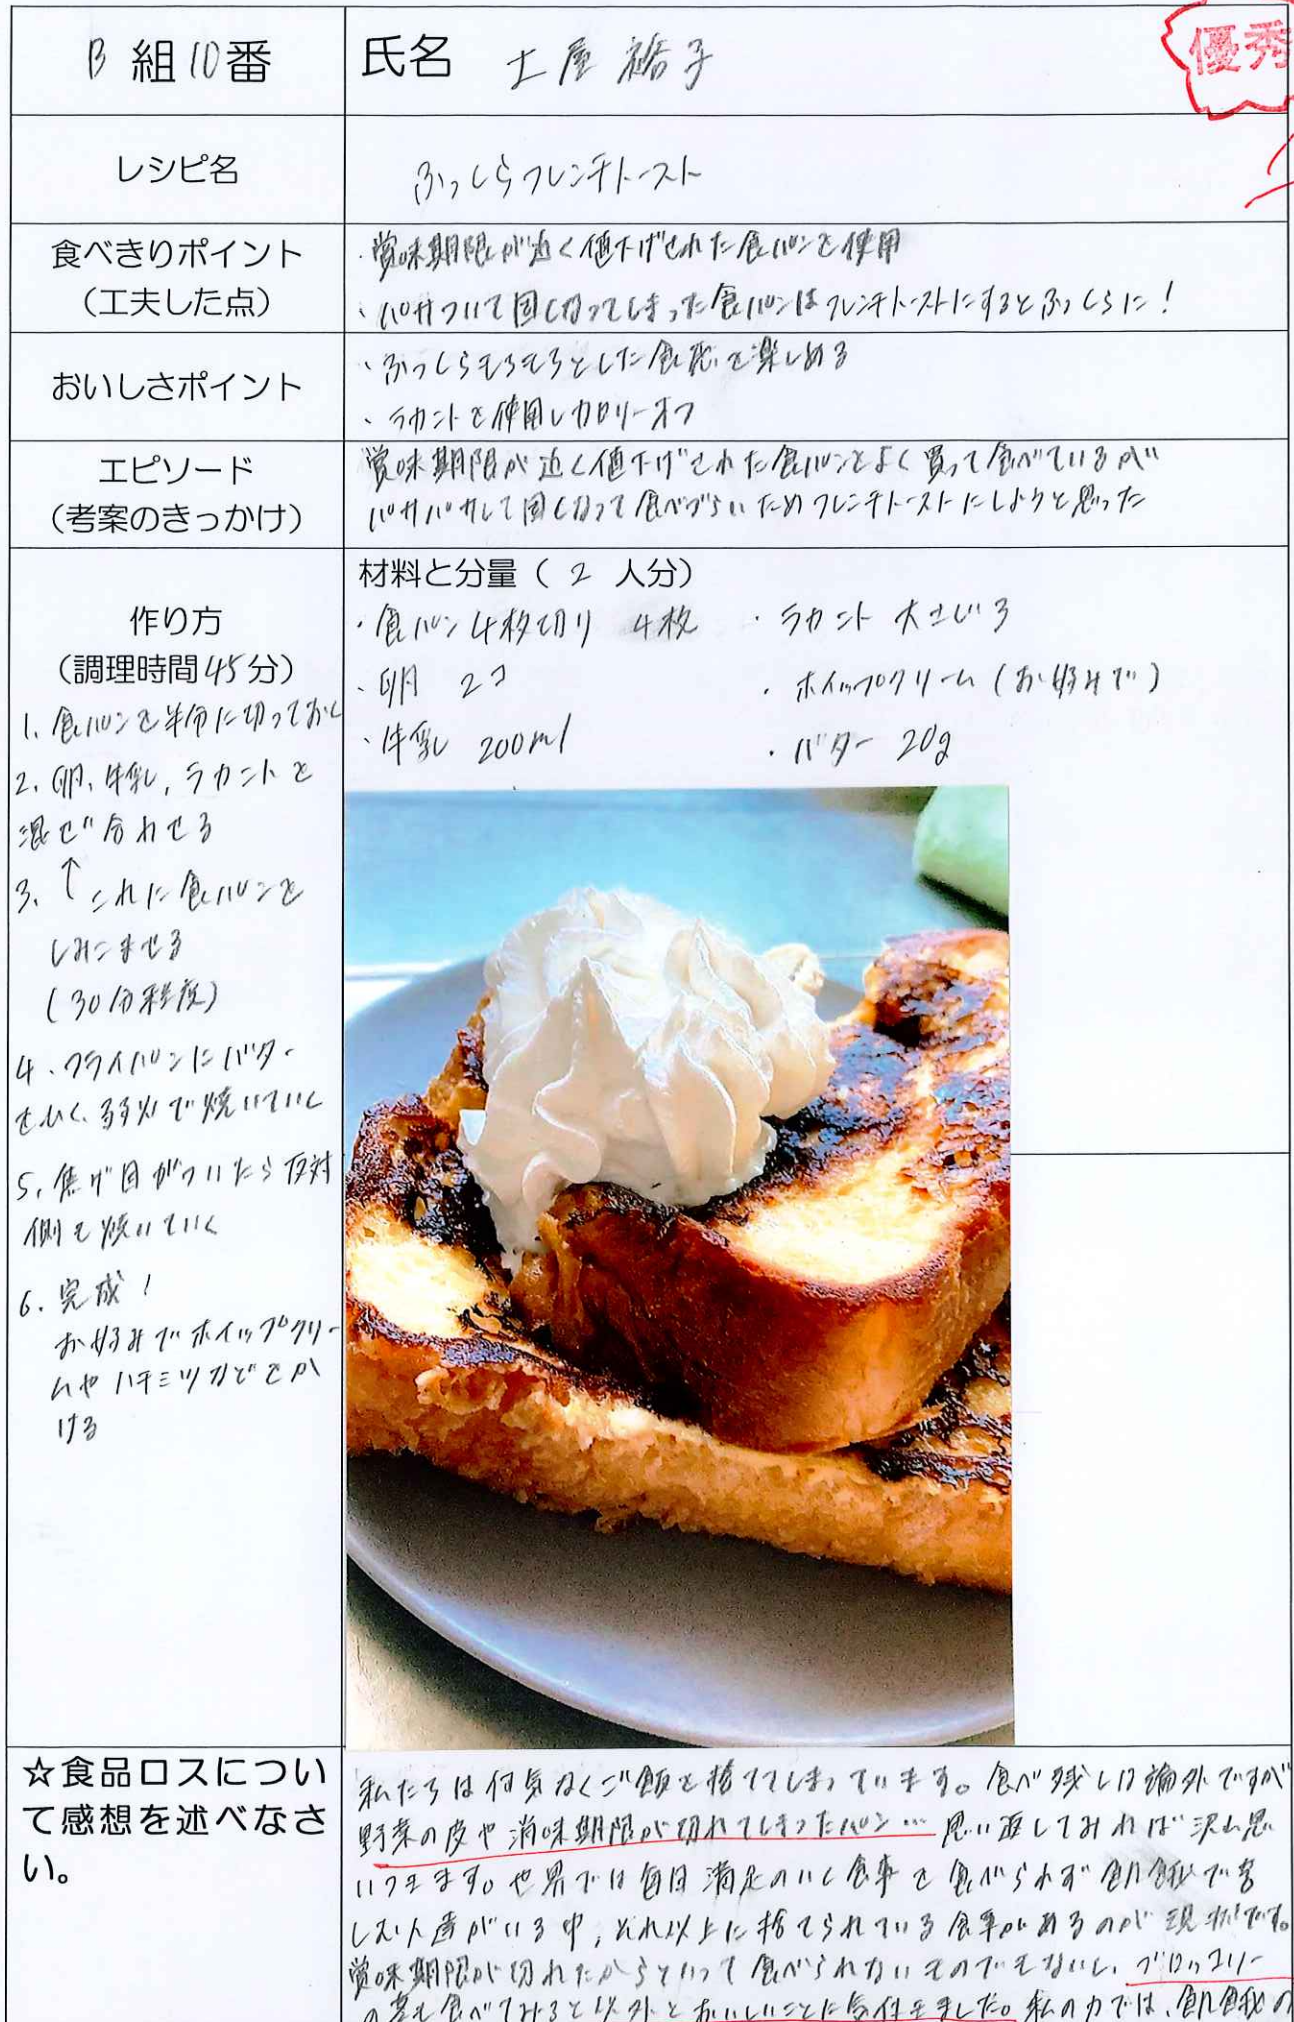 B 組 10 番
氏名 土屋 子
優秀
レシピ名
ふっくらフレンチトースト
食べきりポイント
(工夫した点)
・賞味期限が近く値下げされた食パンを使用
・パサついて固くなってしまった食パンはフレンチトーストにするとふっくらに!
おいしさポイント
・ふっくらもちもちとした食感を楽しめる
・ラカントを使用しカロリーオフ
エピソード
(考案のきっかけ)
賞味期限が近く値下げされた食パンをよく買って食べているが
パサパサして固くなって食べづらいためフレンチトーストにしようと思った
作り方
(調理時間45分)
1. 食パンを半分に切っておく
2. 卵、牛乳、ラカントを
混ぜ合わせる
3. ↑これに食パンを
しみこませる
(30分程度)
4. フライパンにバター
をひく、弱火で焼いていく
5. 焦げ目がついたら反対
側も焼いていく
6. 完成!
お好みでホイップクリー
ムやハチミツなどをか
ける
材料と分量( 2 人分)
・食パン4枚切り 4枚 ・ラカント 大さじ3
・卵 2コ ・ホイップクリーム(お好みで)
・牛乳 200ml ・バター 20g
☆食品ロスについ
て感想を述べなさ
い。
私たちは何気なくご飯を捨ててしまっています。食べ残しは論外ですが
野菜の皮や消味期限が切れてしまったパン… 思い返してみれば沢山思
いつきます。世界では毎日満足のいく食事を食べられず飢餓で苦
しむ人達がいる中、それ以上に捨てられている食事があるのが現状です。
賞味期限が切れたからといって食べられないものでもないし、ブロッコリー
の茎も食べてみると以外とおいしいことに気付きました。私の力では、飢餓の